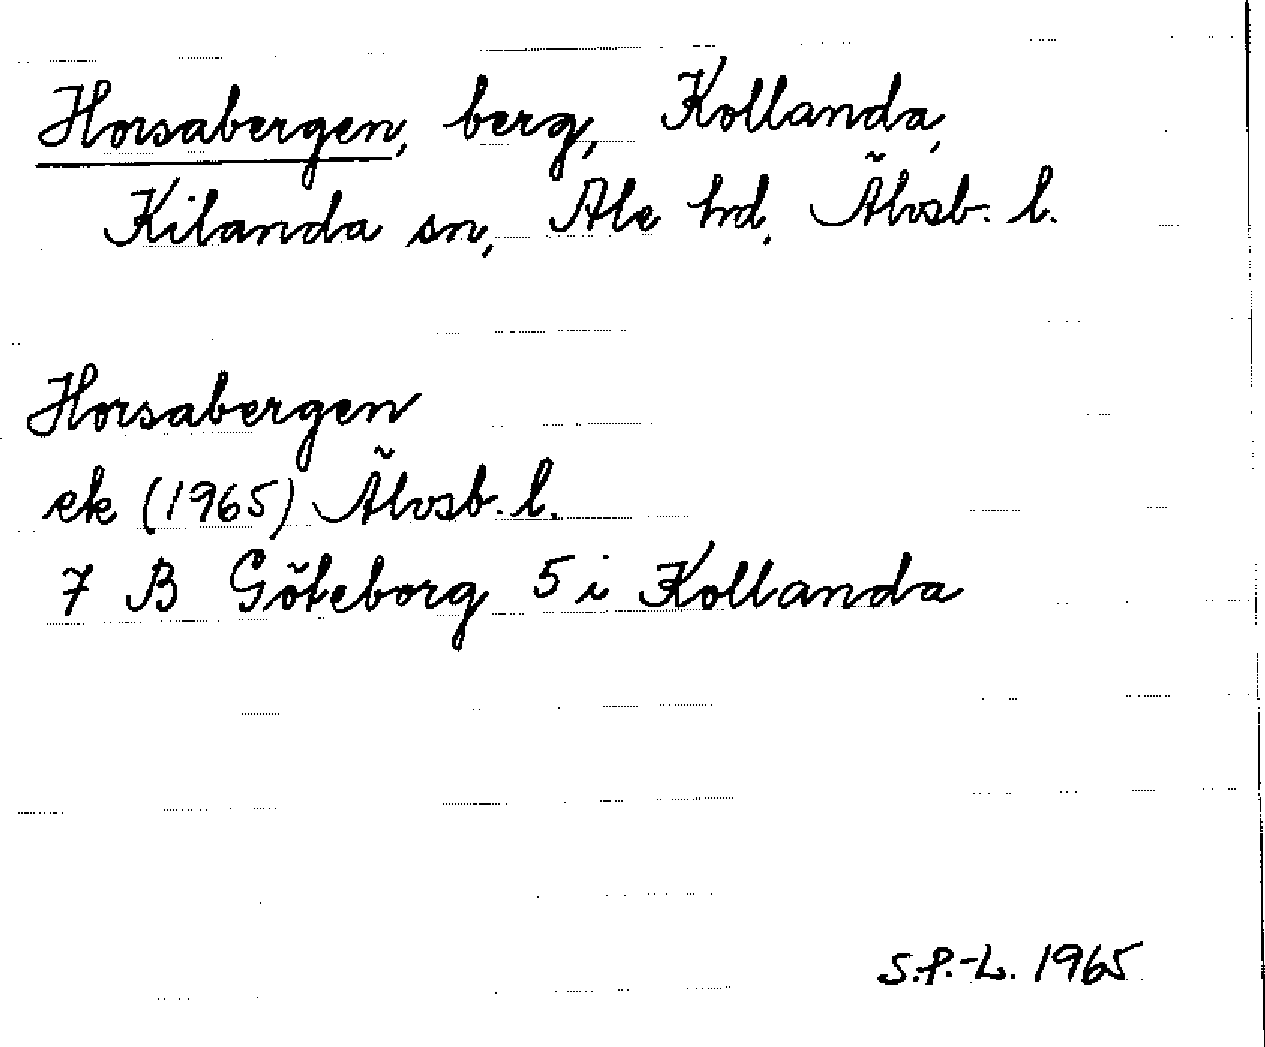 Horsabergen, berg, Kollanda,
Kilanda sn, Ale hd, Älvsb. l.
Horsabergen
ek (1965) Älvsb. l.
7 B Göteborg 5 i Kollanda
S.P.-L. 1965